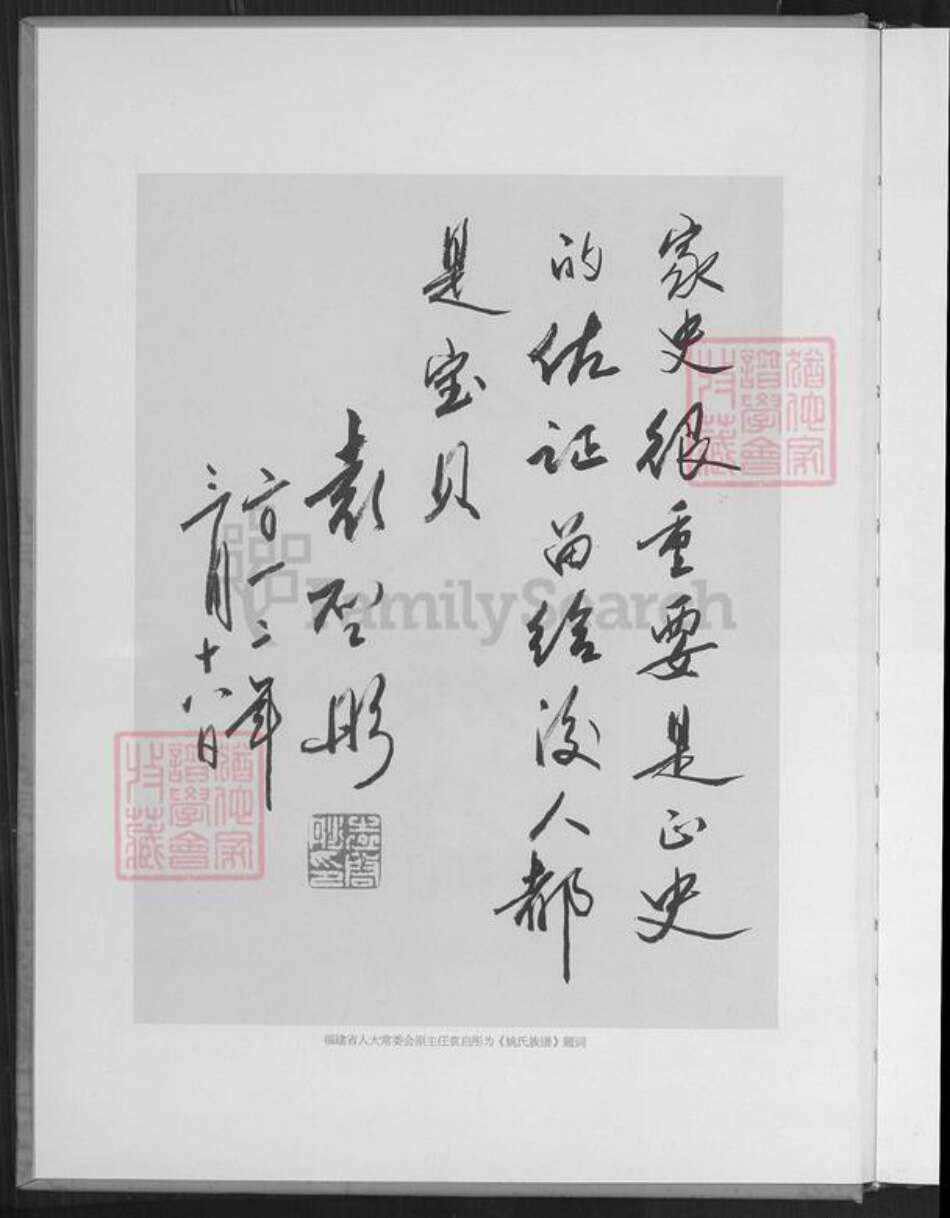 家史很重要是正史
的佐证留给後人都
是宝贝
袁启彤
二〇一二年
三月十八日
袁啓彤印
猶他家譜學會收藏
猶他家譜學會收藏
FamilySearch
福建省人大常委会原主任袁启彤为《姚氏族谱》题词